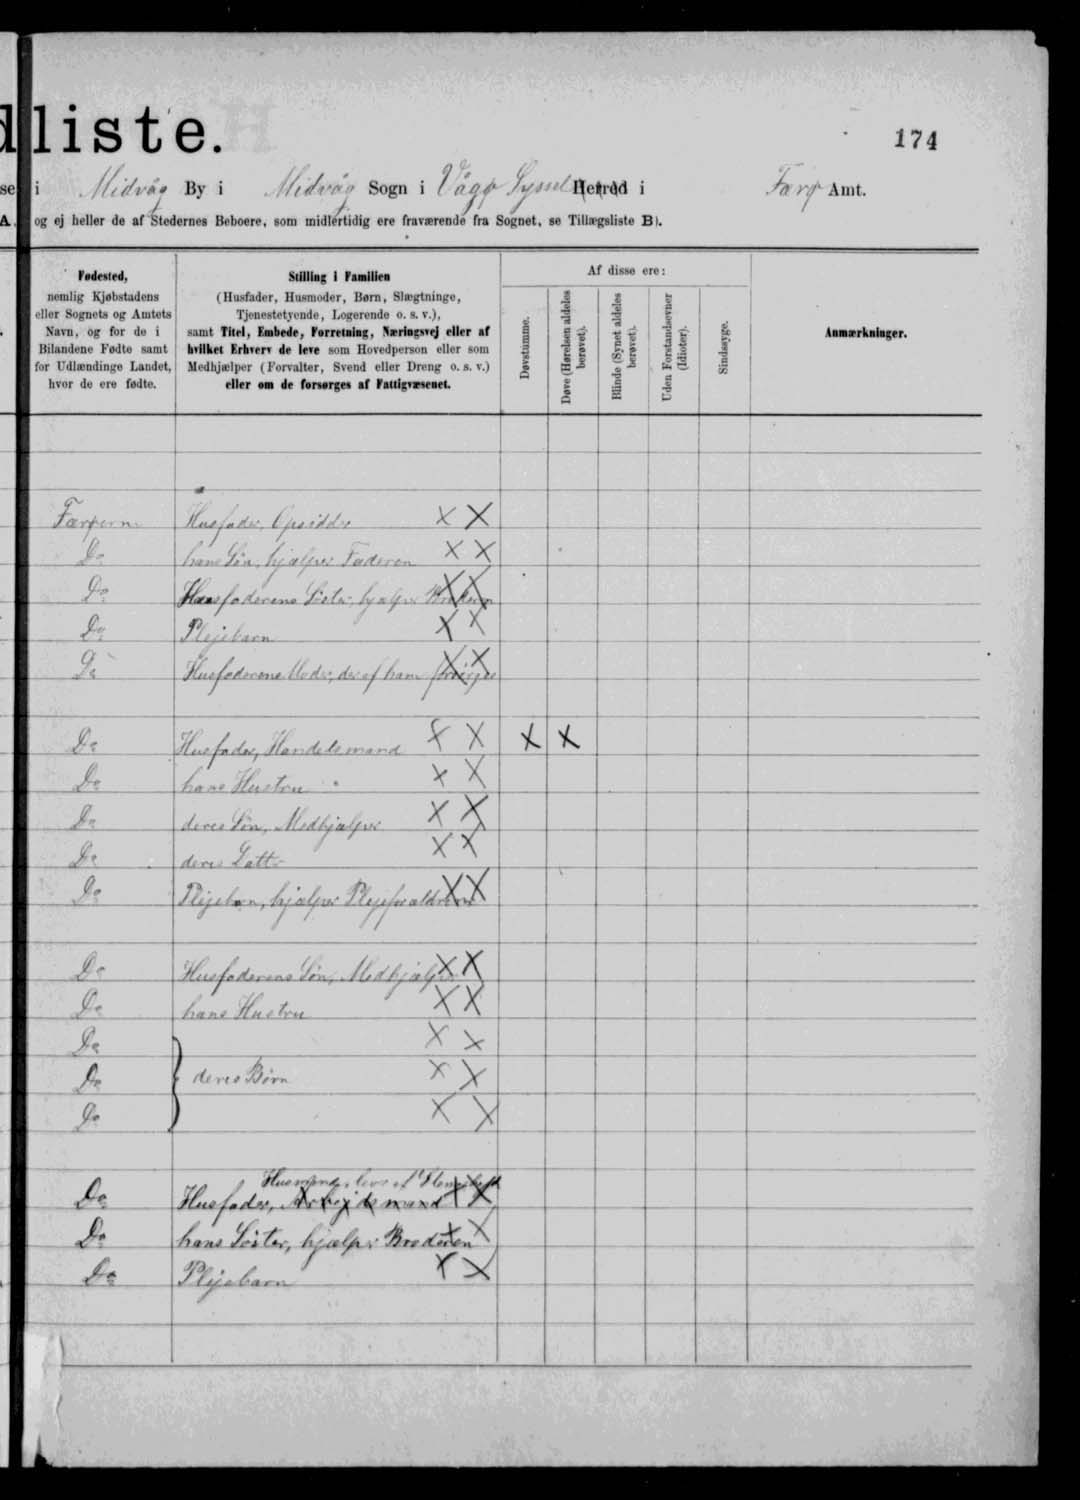 dliste.
174
se i Midvåg By i Midvåg Sogn i Vågø Syssel Herred i Færø Amt.
A, og ej heller de af Stedernes Beboere, som midlertidig ere fraværende fra Sognet, se Tillægsliste B).
Fødested,
nemlig Kjøbstadens
eller Sognets og Amtets
Navn, og for de i
Bilandene Fødte samt
for Udlændinge Landet,
hvor de ere fødte.
Stilling i Familien
(Husfader, Husmoder, Børn, Slægtninge,
Tjenestetyende, Logerende o. s. v.),
samt Titel, Embede, Forretning, Næringsvej eller af
hvilket Erhverv de leve som Hovedperson eller som
Medhjælper (Forvalter, Svend eller Dreng o. s. v.)
eller om de forsørges af Fattigvæsenet.
Af disse ere:
Døvstumme.
Døve (Hørelsen aldeles
berøvet).
Blinde (Synet aldeles
berøvet).
Uden Forstandsevner
(Idioter).
Sindssyge.
Anmærkninger.
Færøerne Husfader, Opsidder X X
Do hans Søn, hjælper Faderen X X
Do Husfaderens Søster, hjælper Broderen X X
Do Plejebarn X X
Do Husfaderens Moder, der af ham forsørges X X
Do Husfader, Handelsmand X X X X
Do hans Hustru X X
Do deres Søn, Medhjælper X X
Do deres Datter X X
Do Plejebarn, hjælper Plejeforældrene X X
Do Husfaderens Søn, Medhjælper X X
Do hans Hustru X X
Do X X
Do deres Børn X X
Do X X
Husmand, lever af
Do Husfader, Arbejdsmand X X
Do hans Søster, hjælper Broderen X X
Do Plejebarn X X